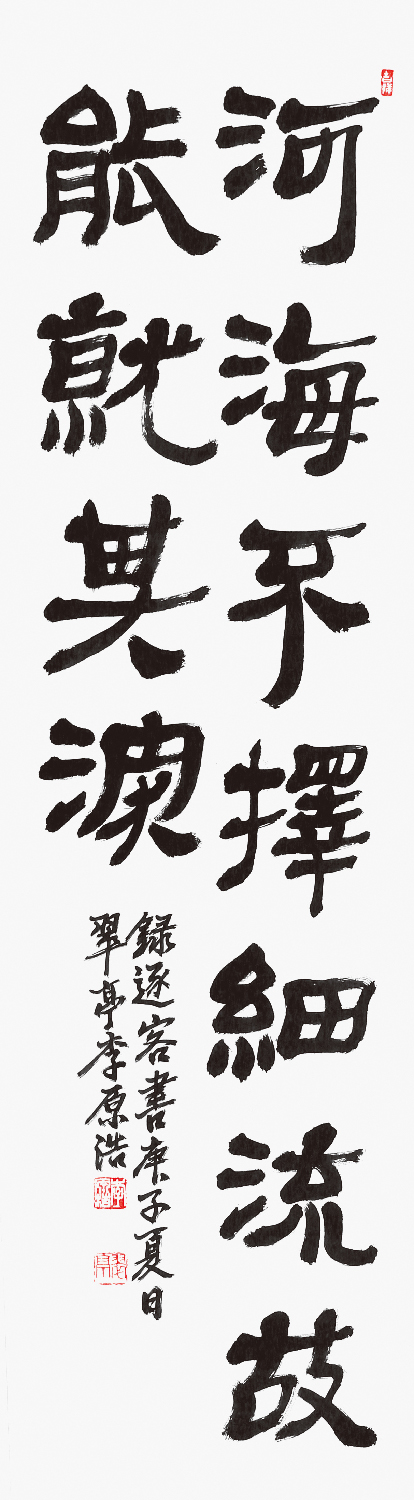 河海不擇細流故
能就其深
錄逐客書庚子夏日
翠亭李原浩